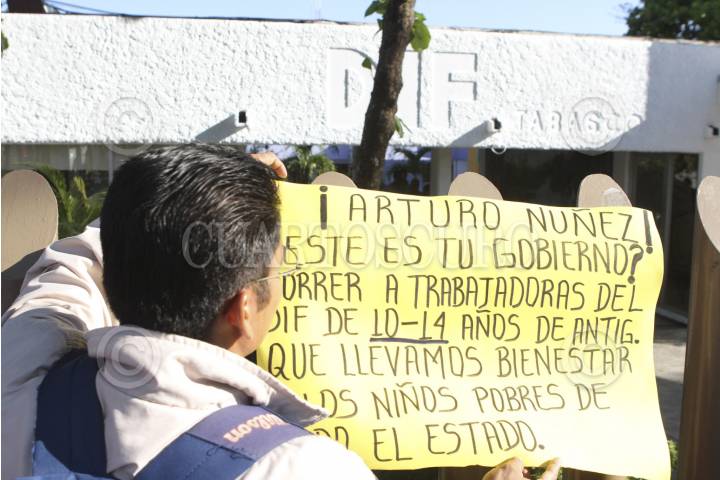 DIF
TABASCO
¡ARTURO NUÑEZ!
ESTE ES TU GOBIERNO?
URRER A TRABAJADORAS DEL
DIF DE 10-14 AÑOS DE ANTIG.
QUE LLEVAMOS BIENESTAR
LOS NIÑOS POBRES DE
DO EL ESTADO.
CUARTOSCURO
Wilson